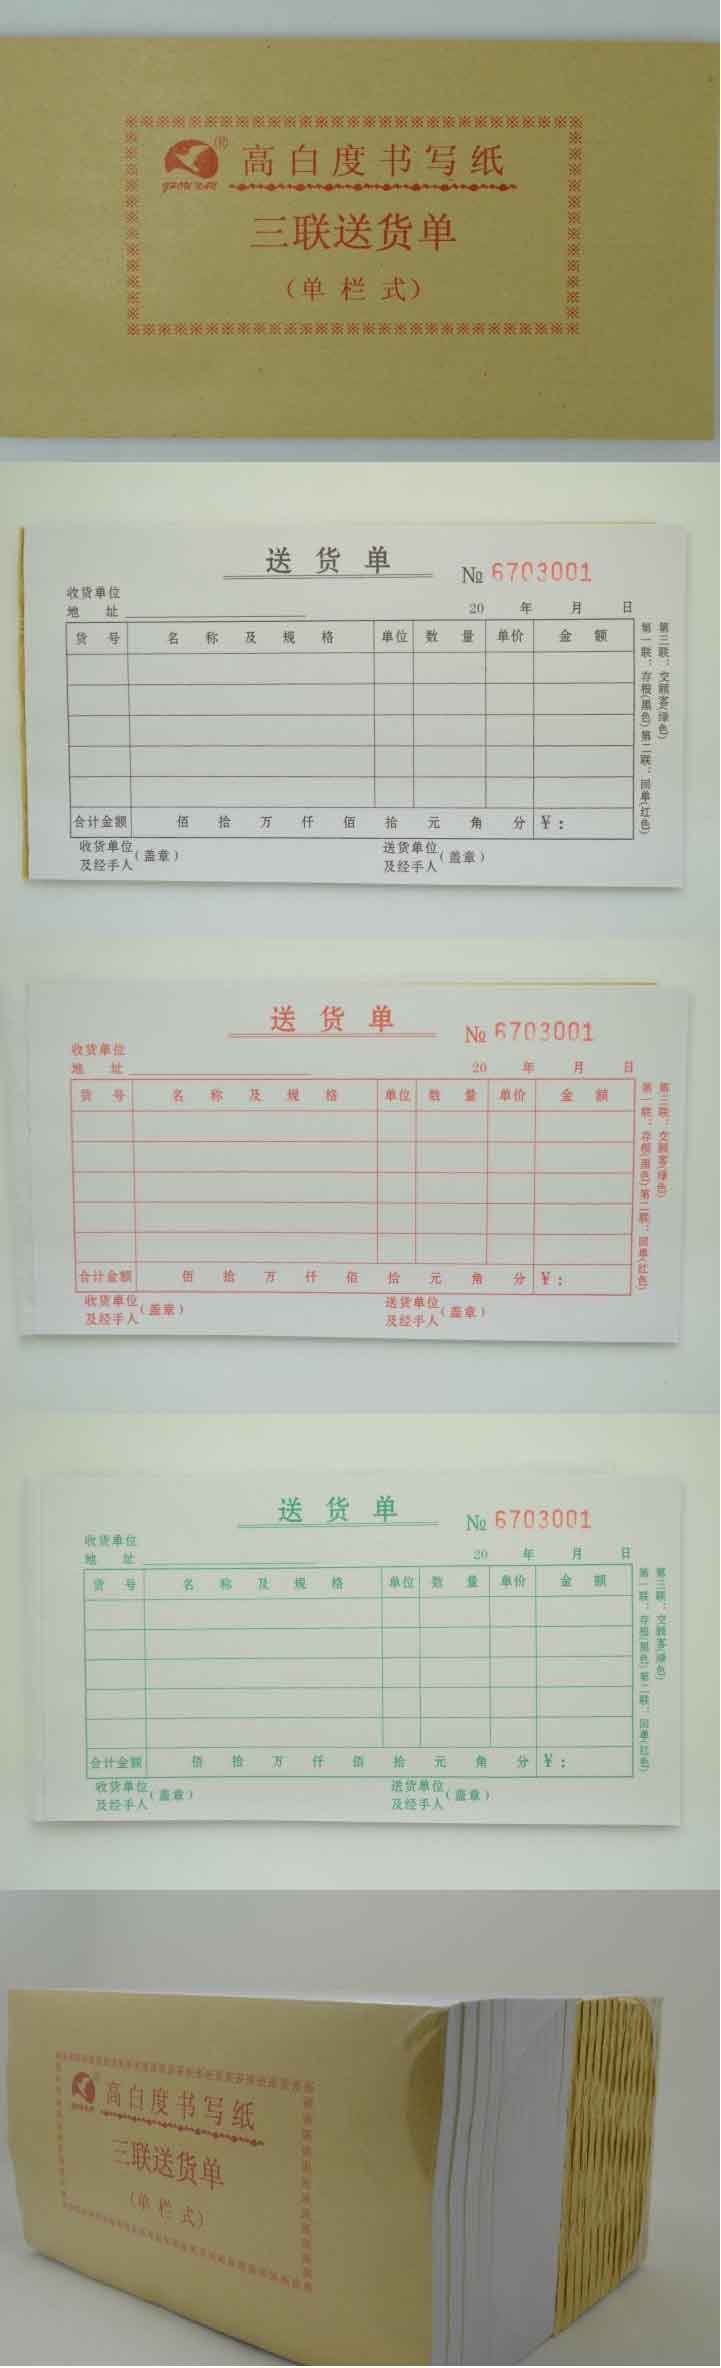 高白度书写纸
三联送货单
（单栏式）
送货单
№ 6703001
收货单位
地址
20 年 月 日
货号 名称及规格 单位 数量 单价 金额
合计金额 佰 拾 万 仟 佰 拾 元 角 分 ¥：
收货单位及经手人（盖章） 送货单位及经手人（盖章）
第一联：存根(黑色)第二联：回单(红色)
第三联：交顾客(绿色)
送货单
№ 6703001
收货单位
地址
20 年 月 日
货号 名称及规格 单位 数量 单价 金额
合计金额 佰 拾 万 仟 佰 拾 元 角 分 ¥：
收货单位及经手人（盖章） 送货单位及经手人（盖章）
第一联：存根(黑色)第二联：回单(红色)
第三联：交顾客(绿色)
送货单
№ 6703001
收货单位
地址
20 年 月 日
货号 名称及规格 单位 数量 单价 金额
合计金额 佰 拾 万 仟 佰 拾 元 角 分 ¥：
收货单位及经手人（盖章） 送货单位及经手人（盖章）
第一联：存根(黑色)第二联：回单(红色)
第三联：交顾客(绿色)
高白度书写纸
三联送货单
（单栏式）